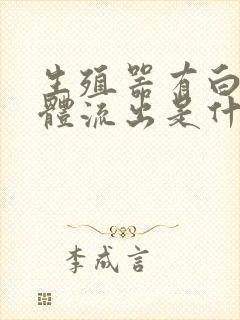 生殖器有白
體流出是什
李成言